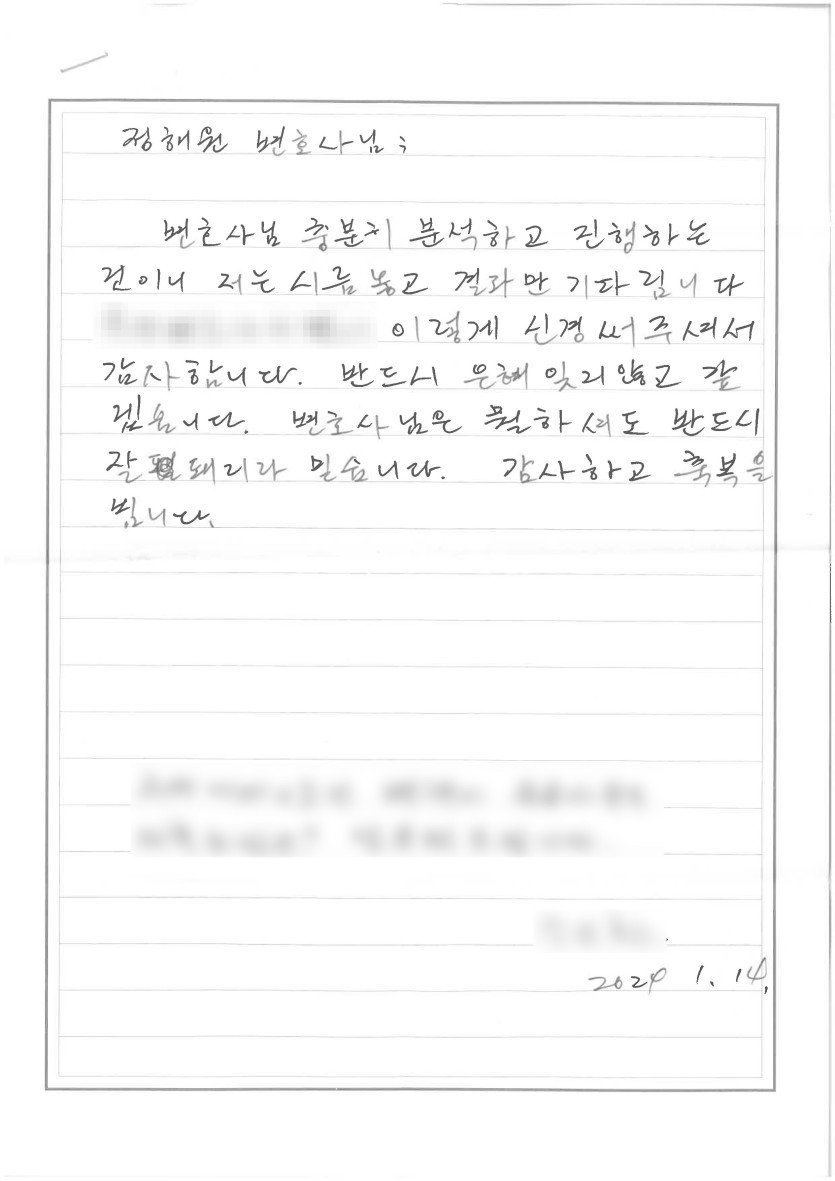 정해원 변호사님;
변호사님 충분히 분석하고 진행하는
건이니 저는 시름 놓고 결과만 기다립니다
이렇게 신경써주셔서
감사합니다. 반드시 은혜 잊지 않고
변호사님은 뭘하셔도 반드시
잘 돼리라 믿습니다. 감사하고 축복을
빕니다.
2024 1. 14.